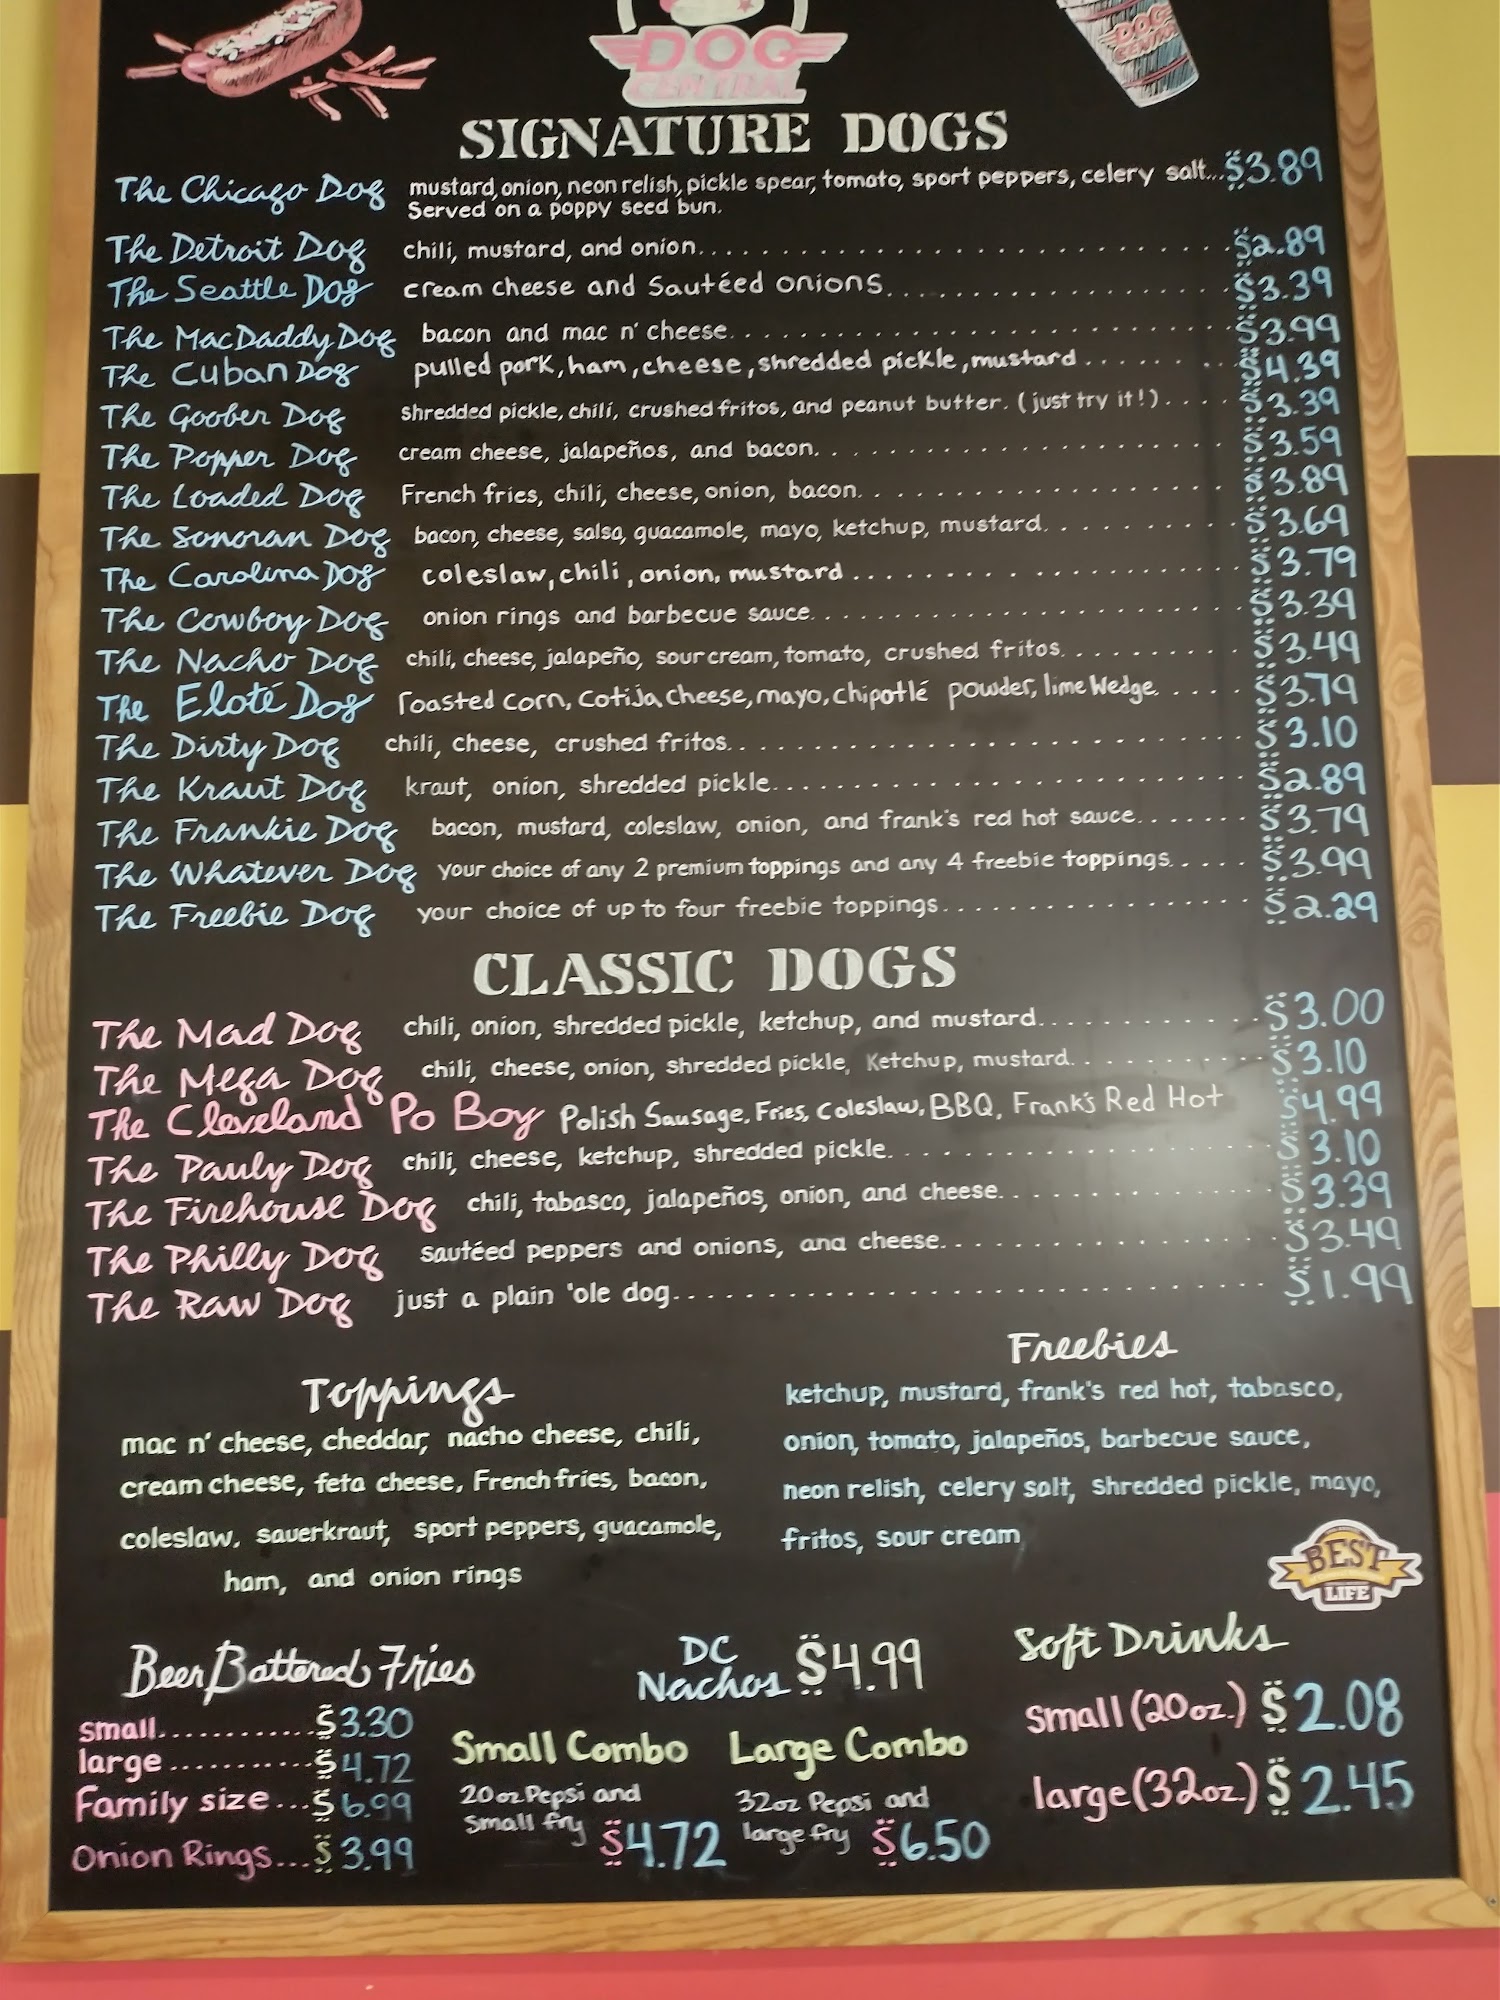 DOG
CENTRAL
DOG
CENTRAL
SIGNATURE DOGS
The Chicago Dog mustard, onion, neon relish, pickle spear, tomato, sport peppers, celery salt...$3.89
Served on a poppy seed bun.
The Detroit Dog chili, mustard, and onion $2.89
The Seattle Dog cream cheese and Sautéed onions $3.39
The MacDaddy Dog bacon and mac n' cheese $3.99
The Cuban Dog pulled pork, ham, cheese, shredded pickle, mustard $4.39
The Goober Dog shredded pickle, chili, crushed fritos, and peanut butter. (just try it!) $3.39
The Popper Dog cream cheese, jalapeños, and bacon $3.59
The Loaded Dog French fries, chili, cheese, onion, bacon $3.89
The Sonoran Dog bacon, cheese, salsa, guacamole, mayo, ketchup, mustard $3.69
The Carolina Dog coleslaw, chili, onion, mustard $3.79
The Cowboy Dog onion rings and barbecue sauce $3.39
The Nacho Dog chili, cheese, jalapeño, sour cream, tomato, crushed fritos $3.49
The Eloté Dog roasted corn, Cotija Cheese, mayo, chipotlé powder, lime Wedge $3.79
The Dirty Dog chili, cheese, crushed fritos $3.10
The Kraut Dog kraut, onion, shredded pickle $2.89
The Frankie Dog bacon, mustard, coleslaw, onion, and frank's red hot sauce $3.79
The Whatever Dog your choice of any 2 premium toppings and any 4 freebie toppings $3.99
The Freebie Dog your choice of up to four freebie toppings $2.29
CLASSIC DOGS
The Mad Dog chili, onion, shredded pickle, ketchup, and mustard $3.00
The Mega Dog chili, cheese, onion, shredded pickle, Ketchup, mustard $3.10
The Cleveland Po Boy Polish Sausage, Fries, Coleslaw, BBQ, Frank's Red Hot $4.99
The Pauly Dog chili, cheese, ketchup, shredded pickle $3.10
The Firehouse Dog chili, tabasco, jalapeños, onion, and cheese $3.39
The Philly Dog sautéed peppers and onions, and cheese $3.49
The Raw Dog just a plain 'ole dog $1.99
Toppings
mac n' cheese, cheddar, nacho cheese, chili,
cream cheese, feta cheese, French fries, bacon,
coleslaw, sauerkraut, sport peppers, guacamole,
ham, and onion rings
Freebies
ketchup, mustard, frank's red hot, tabasco,
onion, tomato, jalapeños, barbecue sauce,
neon relish, celery salt, shredded pickle, mayo,
fritos, sour cream
BEST
LIFE
Beer Battered Fries
small $3.30
large $4.72
Family size...$6.99
Onion Rings...$3.99
DC
Nachos $4.99
Small Combo
20oz Pepsi and
Small fry $4.72
Large Combo
32oz Pepsi and
large fry $6.50
Soft Drinks
small (20oz.) $2.08
large (32oz.) $2.45